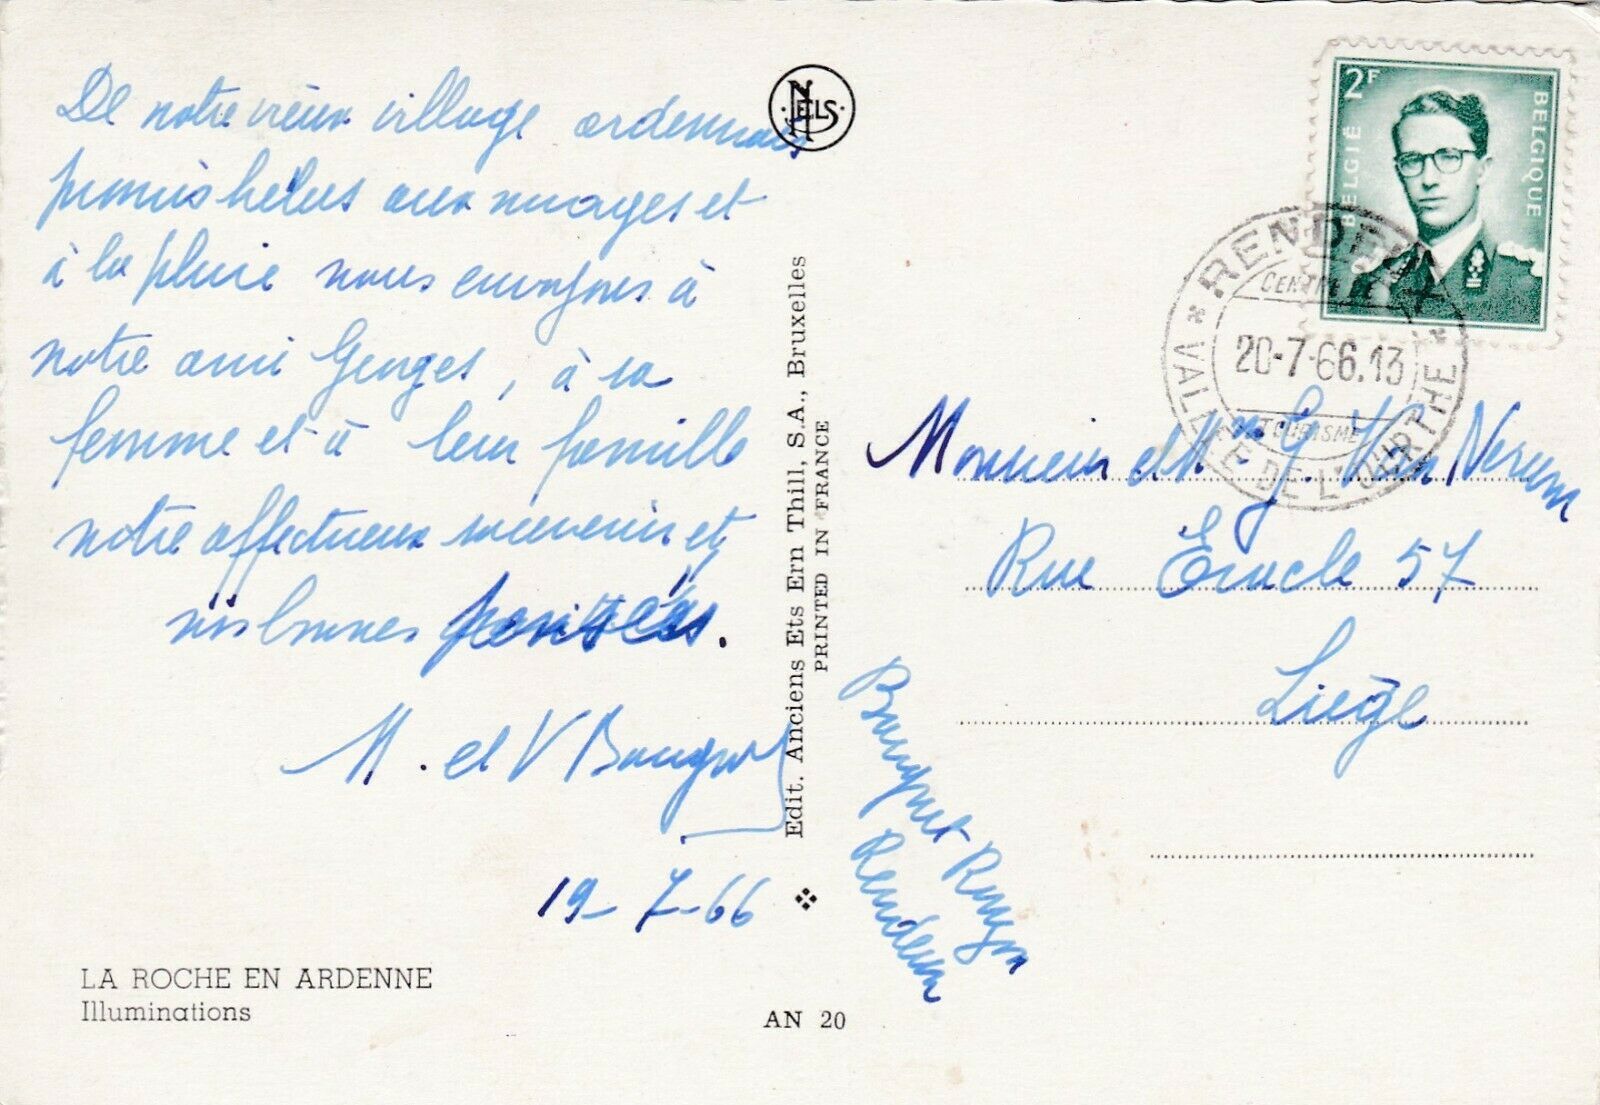 De notre vieux village ardennais
promis hélas aux nuages et
à la pluie nous envoyons à
notre ami Georges, à sa
femme et à leur famille
notre affectueux souvenir et
nos bonnes pensées.
M. et V
19-7-66
LA ROCHE EN ARDENNE
Illuminations
NELS
Edit. Anciens Ets Ern Thill, S.A., Bruxelles
PRINTED IN FRANCE
AN 20
2F
BELGIË
BELGIQUE
RENDEUX
CENTRE DE
20-7-66.13
TOURISME
VALLEE DE L'OURTHE
Monsieur et Mme G. Van
Rue Eracle 57
Liège
Rendeux